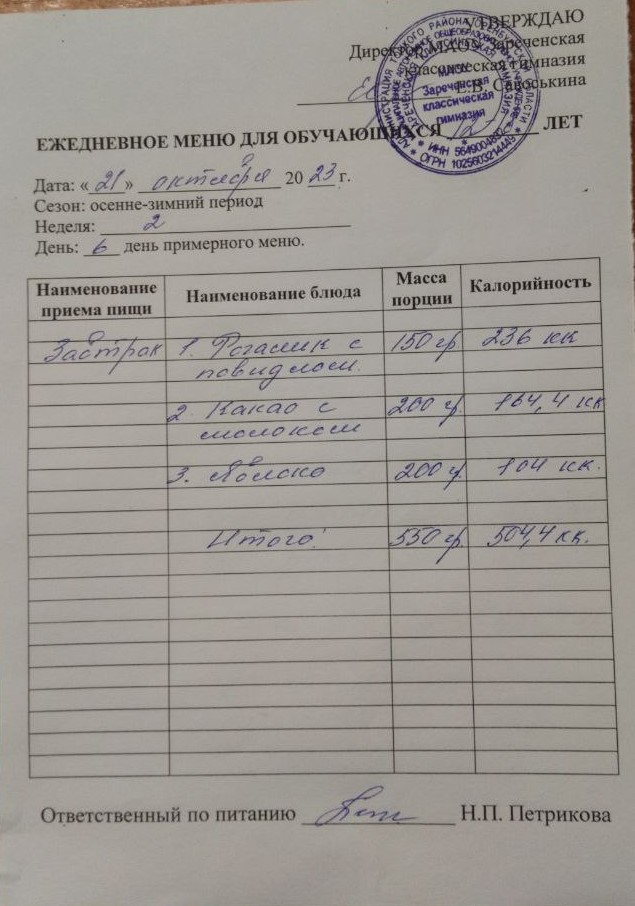 УТВЕРЖДАЮ
Директор МАОУ Зареченская
классическая гимназия
Е.В. Савоськина
МАОУ
Зареченская
классическая
гимназия
* ИНН 5649004882 *
* ОГРН 1025603214449 *
ЕЖЕДНЕВНОЕ МЕНЮ ДЛЯ ОБУЧАЮЩИХСЯ ЛЕТ
Дата: «21» октября 20 23 г.
Сезон: осенне-зимний период
Неделя: 2
День: 6 день примерного меню.
Наименование приема пищи Наименование блюда Масса порции Калорийность
Завтрак 1. Рогалик с 150 гр 236 кк
повидлом.
2. Какао с 200 гр. 164,4 кк
молоком
3. Яблоко 200 г. 104 кк.
Итого: 550 гр. 504,4 кк.
Ответственный по питанию Н.П. Петрикова